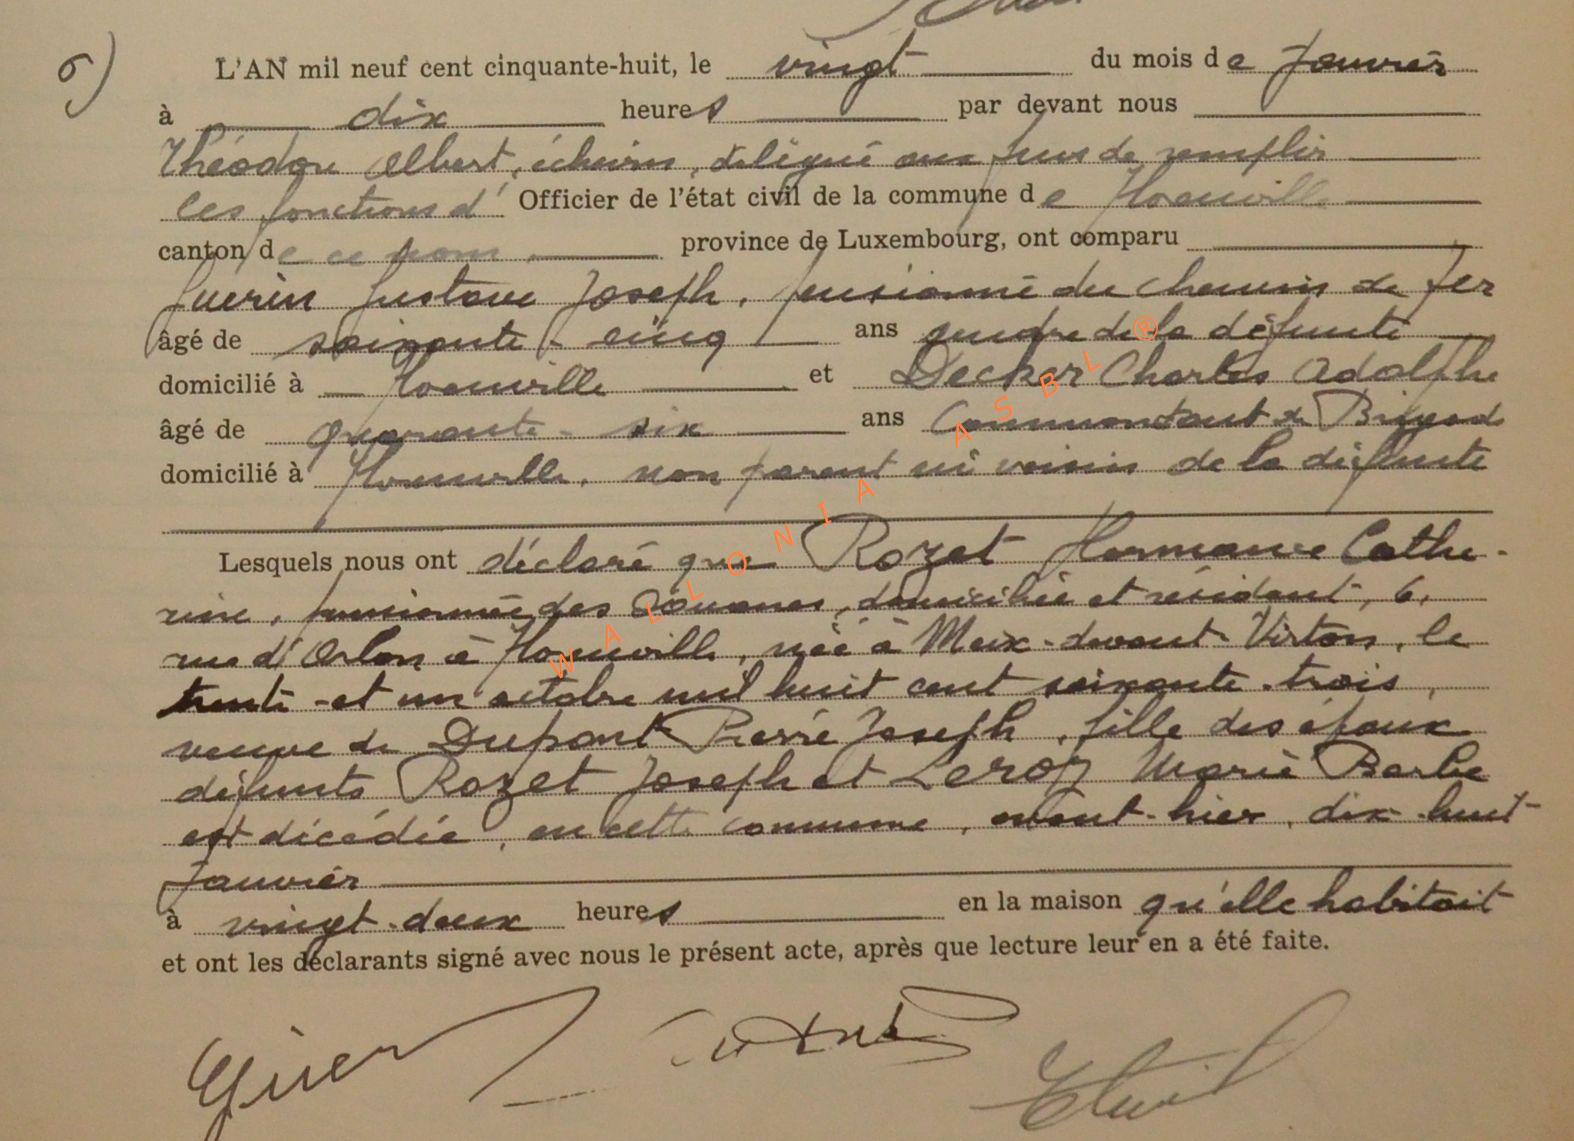 6)
L'AN mil neuf cent cinquante-huit, le vingt du mois de Janvier
à dix heures par devant nous
Théodore Albert, échevin, délégué aux fins de remplir
les fonctions d' Officier de l'état civil de la commune de Florenville
canton de ce nom, province de Luxembourg, ont comparu
Guerin Gustave Joseph, pensionné du chemin de fer
âgé de soixante-cinq ans gendre de la défunte
domicilié à Florenville et Decker Charles Adolphe
âgé de quarante-six ans Commandant de Brigade
domicilié à Florenville, non parent ni voisin de la défunte
Lesquels nous ont déclaré que Rozet Hermance Cathe-
rine, pensionnée des Douanes, domiciliée et résidant, 6,
rue d'Arlon à Florenville, née à Meix-devant-Virton, le
trente-et un octobre mil huit cent soixante-trois,
veuve de Dupont Pierre Joseph, fille des époux
défunts Rozet Joseph et Leroy Marie Barbe
est décédée, en cette commune, avant-hier, dix-huit
Janvier
à vingt-deux heures en la maison qu'elle habitait
et ont les déclarants signé avec nous le présent acte, après que lecture leur en a été faite.
WALLONIA ASBL ®